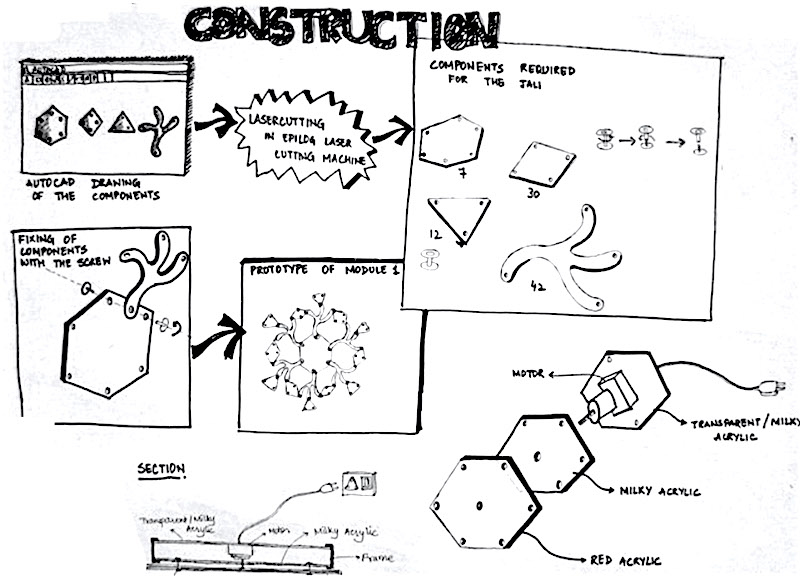 CONSTRUCTION
AUTOCAD
AUTOCAD DRAWING
OF THE COMPONENTS
LASERCUTTING
IN EPILOG LASER
CUTTING MACHINE
COMPONENTS REQUIRED
FOR THE JALI
7
30
12
42
FIXING OF
COMPONENTS
WITH THE SCREW
PROTOTYPE OF MODULE 1
MOTOR
TRANSPARENT/MILKY
ACRYLIC
MILKY ACRYLIC
RED ACRYLIC
SECTION
Transparent/Milky
Acrylic
Motor
Milky Acrylic
Frame